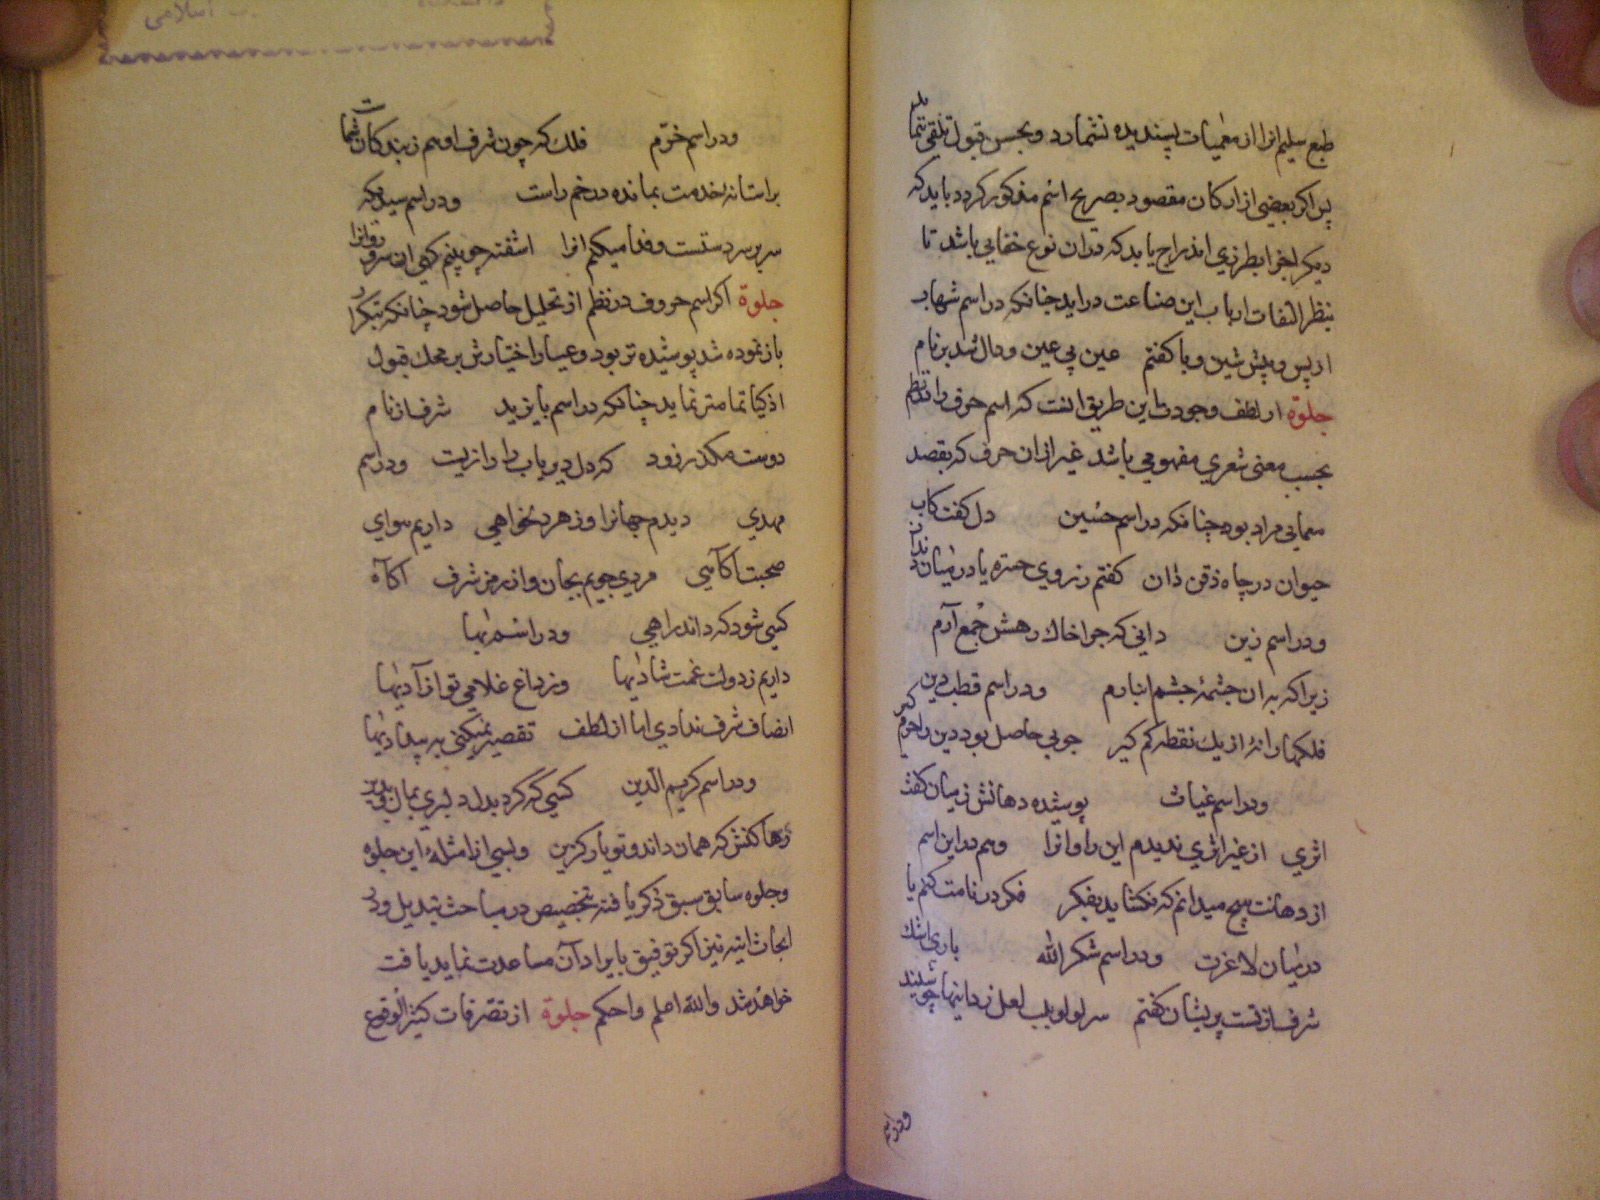 طبع سلیم انرا از معمیات پسندیده نشمارد و بحسن قبول تلقی ننماید
پس اکر بعضی از ارکان مقصود بصریح اسم مذکور کردد باید که
دیکر اجزا بطرزی اندراج یابد که در ان نوع خفایی باشد تا
بنظر التفات ارباب این صناعت دراید چنانکه در اسم شهاب
از پس و پیش شین و با کفتم عین پی عین و دال شد بر نام
جلوة از لطف وجودت این طریق انست که اسم حرف را در نظم
بحسب معنی شعری مفهومی باشد غیر از ان حرف که بقصد
معمایی مراد بود چنانکه در اسم حسین دل کفت کاب
حیوان در چاه ذقن دان کفتم ز روی حیره یا در میان دندان
و در اسم زین دانی که چرا خاک رهش جمع آرم
زیرا که به ان چشمهٔ چشم انبارم و در اسم قطب دین
فلکها را نهٔ از یک نقطه کم کیر چو بی حاصل بود دین را هم کیر
و در اسم غیاث پوشیده دهانش ز میان کفت
اثری از غیر اثری ندیدم این را و انرا و هم در این اسم
از دهانت هیچ میدانم که نکشاید بفکر فکر در نامت کنم یا
در میان لاغرت و در اسم شکر الله باری اشک
شرف از تست پریشان کفتم سر لولو بلب لعل ز دانیها چو شنید
و در اسم
و در اسم خرم فلک که چون شرف او هم ز بندکان شماست
بر استانه بخدمت بمانده در خم راست و در اسم سید که
سر بر سر دستست و فدا میکنم انرا اشفته چو بینم کهی ان سرو روانرا
جلوة اکر اسم حروف در نظم از تحلیل حاصل شود چنانکه بتکرار
باز نموده شد پوشیده تر بود و عیار اختیارش بر محک قبول
اذکیا تمامتر نماید چنانکه در اسم بایزید شرف از نام
دوست مکذر زود که دل دیر یاب را رازیت و در اسم
مهدی دیدم جهانرا و ز هر دخواهی داریم سوای
صحبت آکاهی مردی جویم بجان و از رمز شرف آکاه
کسی شود که داند راهی و در اسم بها
داریم ز دولت غمت شادیها وز داغ غلامی تو آزادیها
انصاف شرف ندادی اما از لطف تقصیر نمیکنی به بیدادیها
و در اسم کریم الدین کسی که کرد بدل دلبری بمال بدین
رها کنش که همان داند و تو یار کزین و بسی از امثلهٔ این جلوه
و جلوه سابق سبق ذکر یافته بتخصیص در مباحث تبدیل و در
ابحاث اتیه نیز اکر توفیق بایراد آن مساعدت نماید یافت
خواهد شد والله اعلم واحکم جلوة از تصرفات کثیر الوقوع